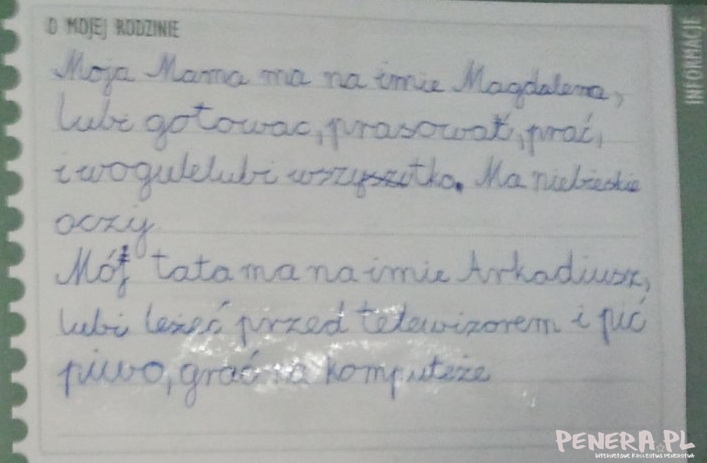 O MOJEJ RODZINIE
INFORMACJE
Moja Mama ma na imie Magdalena,
lubi gotowac, prasować, prać,
i wogule lubi wszystko. Ma niebieskie
oczy
Mój tata ma na imie Arkadiusz,
lubi leżeć przed telewizorem i pić
piwo, grać na komputeże
PENERA.PL